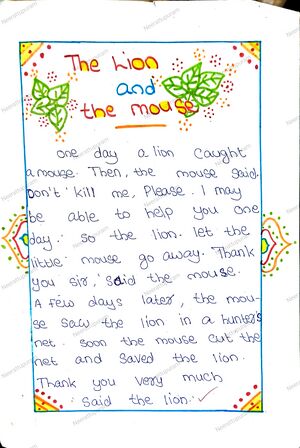 The Lion
and
the mouse
one day a lion caught
a mouse. Then, the mouse said.
Don't' kill me, Please. I may
be able to help you one
day.' so the lion. let the
little mouse go away. Thank
you sir,' said the mouse.
A few days later, the mou-
se saw the lion in a hunter's
net. soon the mouse cut the
net and saved the lion.
Thank you very much
said the lion.